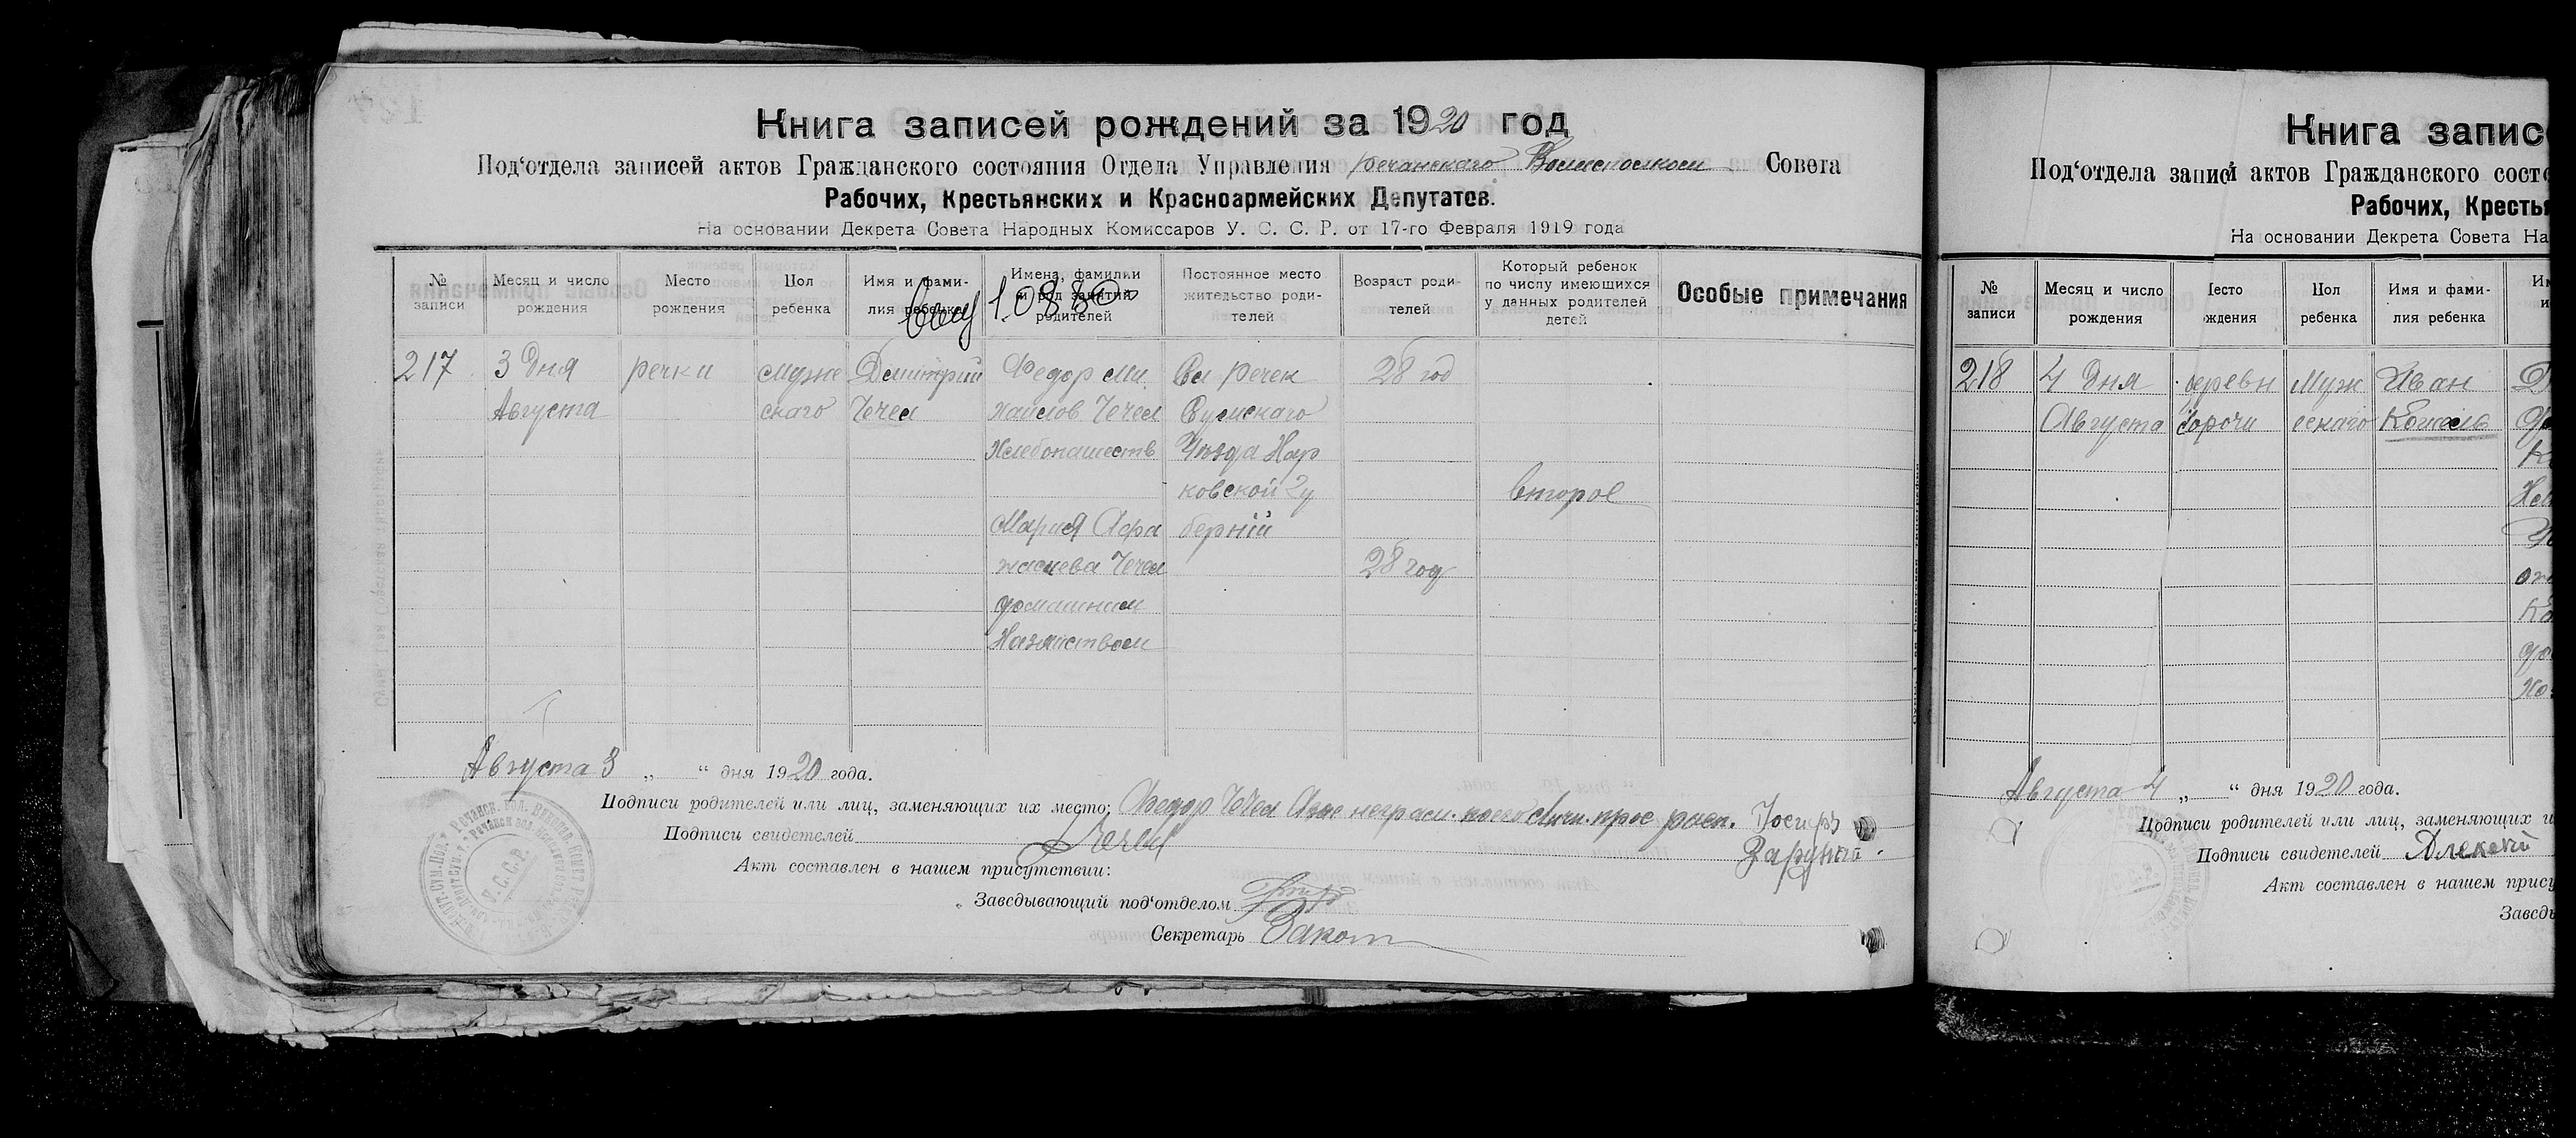 Книга записей рождений за 1920 год
Под‘отдела записей актов Гражданского состояния Отдела Управления речанскаго Волисполком Совета
Рабочих, Крестьянских и Красноармейских Депутатов.
На основании Декрета Совета Народных Комиссаров У. С. С. Р. от 17-го Февраля 1919 года
№ записи
Месяц и число рождения
Место рождения
Пол ребенка
Имя и фамилия ребенка
Имена, фамилии и род занятий родителей
Постоянное место жительство родителей
Возраст родителей
Который ребенок по числу имеющихся у данных родителей детей
Особые примечания
217
3 Дня
Августа
речки
Муже
скаго
Димитрий
Чечел
Федор Ми
хайлов Чечел
Хлебопашеств
Мария Афа
насиева Чечел
домашним
Хазяйством
Сл Речек
Сумскаго
Уезда Хар
ковской Гу
бернии
28 год
28 год
второе
Августа 3 „ “ дня 1920 года.
Подписи родителей или лиц, заменяющих их место: Федор Чечел
Иосиф
Подписи свидетелей
Чечел
Зарудний
Акт составлен в нашем присутствии:
Заведывающий под‘отделом
Секретарь
У.С.С.Р.
Книга записе
Под‘отдела записей актов Гражданского сост
Рабочих, Крестья
На основании Декрета Совета На
№ записи
Месяц и число рождения
Место рождения
Пол ребенка
Имя и фамилия ребенка
218
4 Дня
Августа
деревн
Сорочи
Муж
ескаго
Иван
Августа 4 „ “ дня 1920 года.
Подписи родителей или лиц, заменяющих и
Подписи свидетелей Алексей
Акт составлен в нашем прису
Заведы